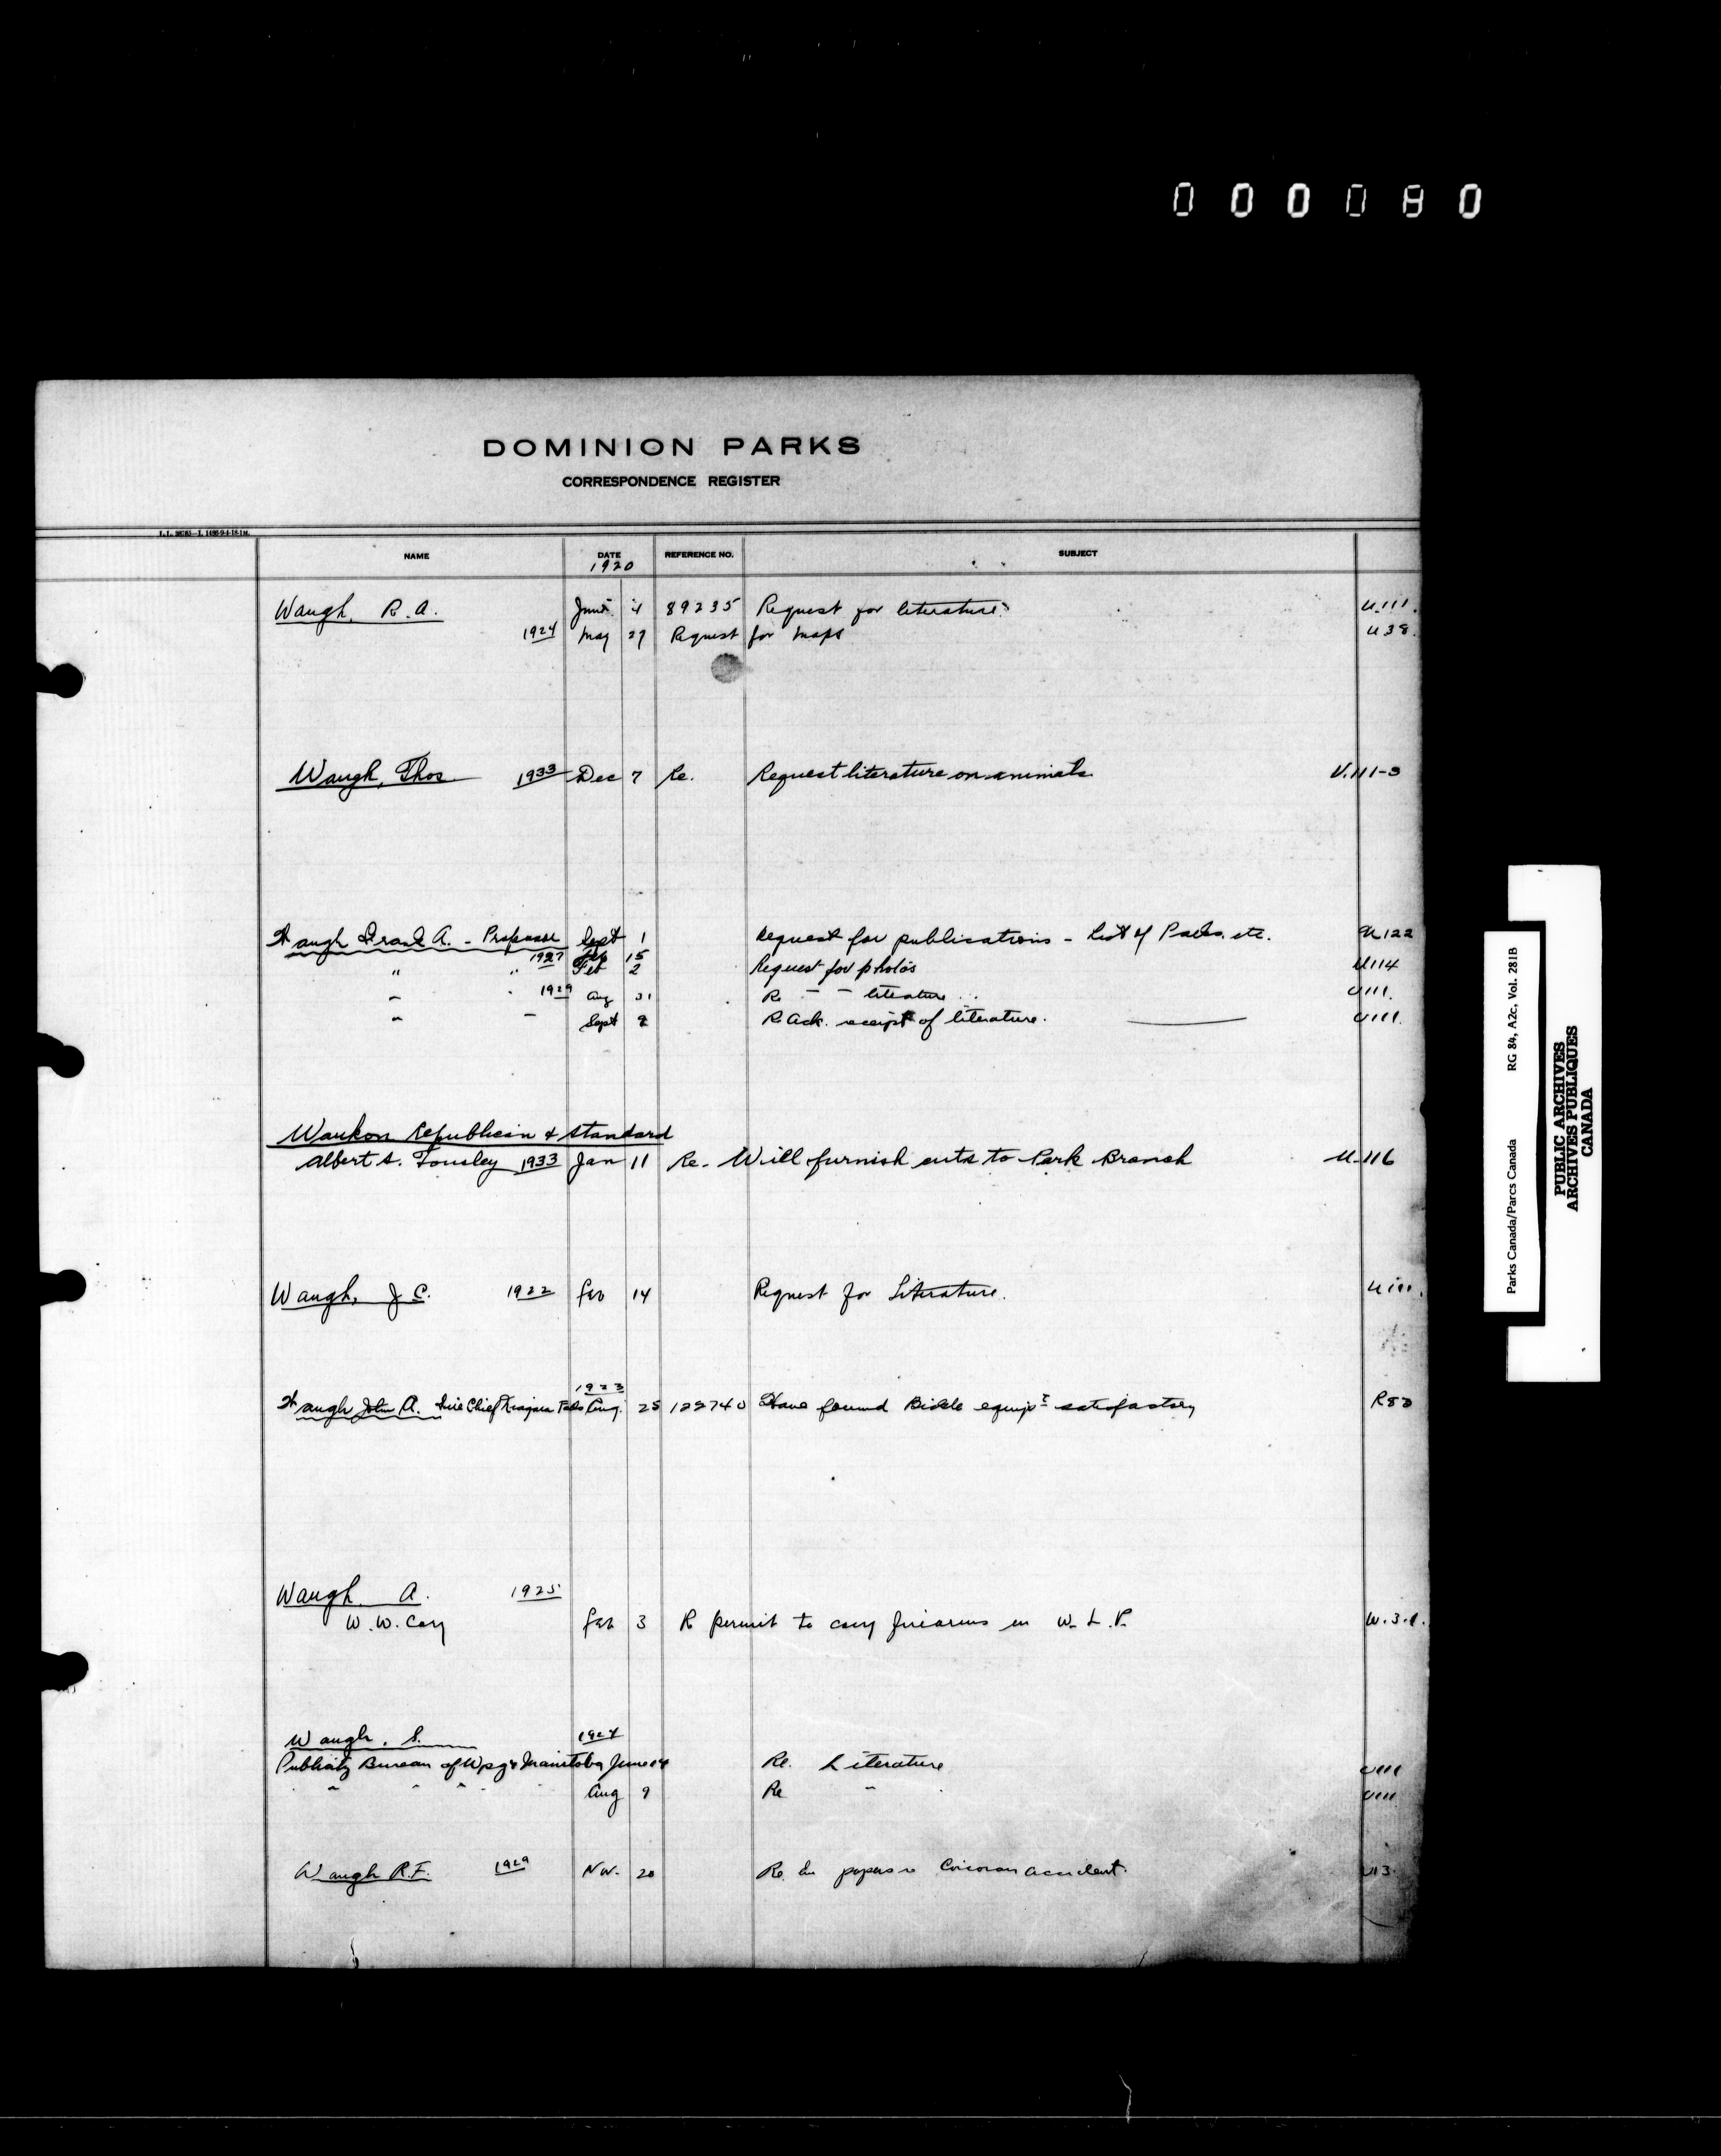 000080
DOMINION PARKS
CORRESPONDENCE REGISTER
NAME DATE REFERENCE NO. SUBJECT
1920
Waugh, R.A. June 4 89235 Request for literature U.111.
1924 May 27 Request for maps U38.
Waugh, Thos 1933 Dec 7 Re. Request literature on animals V.111-3
Waugh Frank A. - Professor Sept 1 Request for publications - List of Parks, etc. U122
1927 15
" " Feb 2 Request for photos U114
1929 Aug 31 Re literature U111.
Sept 9 Re Ack. receipt of literature. U111.
Waukon Republican & Standard
Albert S. Tousley 1933 Jan 11 Re. Will furnish cuts to Park Branch U-116
Waugh, J C. 1922 14 Request for Literature. U111.
1923
Waugh John A. Fire Chief Niagara Falls Aug. 25 122740 Have found Bickle equipt satisfactory
Waugh A. 1925
W.W. Cory 3 R permit to carry firearms in W.L.P. W.3.1.
Waugh, S. 1924
Publicity Bureau of Wpg & Manitoba June 14 Re. Literature U111
Aug 9 Re " U111
Waugh R.F. 1929 Nov. 20 Re papers re Corcoran accident. U13
Parks Canada/Parcs Canada RG 84, A2c, Vol. 281B
PUBLIC ARCHIVES
ARCHIVES PUBLIQUES
CANADA